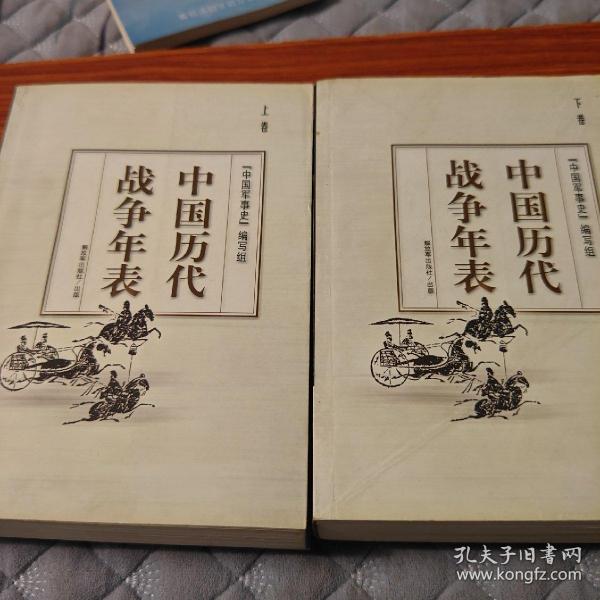 上卷
「中国军事史」编写组
中国历代
战争年表
解放军出版社/出版
下卷
「中国军事史」编写组
中国历代
战争年表
解放军出版社/出版
孔夫子旧书网
www.kongfz.com